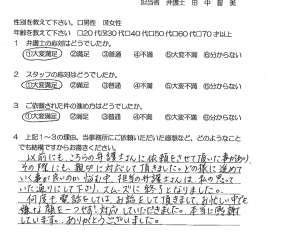 担当者 弁護士 田中智美
性別を教えて下さい。□男性 ☑女性
年齢を教えて下さい。□20代☑30代□40代□50代□60代□70才以上
1 弁護士の応対はどうでしたか。
①大変満足 ②満足 ③普通 ④不満 ⑤大変不満 ⑥分からない
2 スタッフの応対はどうでしたか。
①大変満足 ②満足 ③普通 ④不満 ⑤大変不満 ⑥分からない
3 ご依頼された件の進め方はどうでしたか。
①大変満足 ②満足 ③普通 ④不満 ⑤大変不満 ⑥分からない
4 上記1～3の理由、当事務所にご依頼いただいた感想など、どのようなこと
でも結構ですからお書きください。
以前にも、こちらの弁護士さんに依頼をさせて頂いた事があり
その際にも、親切に対応して頂きました。どの様に進めて
いく事が良いのか悩む中、担当の弁護士さんは、私の思って
いた通りにして下さり、スムーズに終了となりました。
何度も電話をしては、お話をして頂きまして、お忙しい中を
嫌な顔を一つせず対応していただきました。本当に感謝
しています。ありがとうございました。